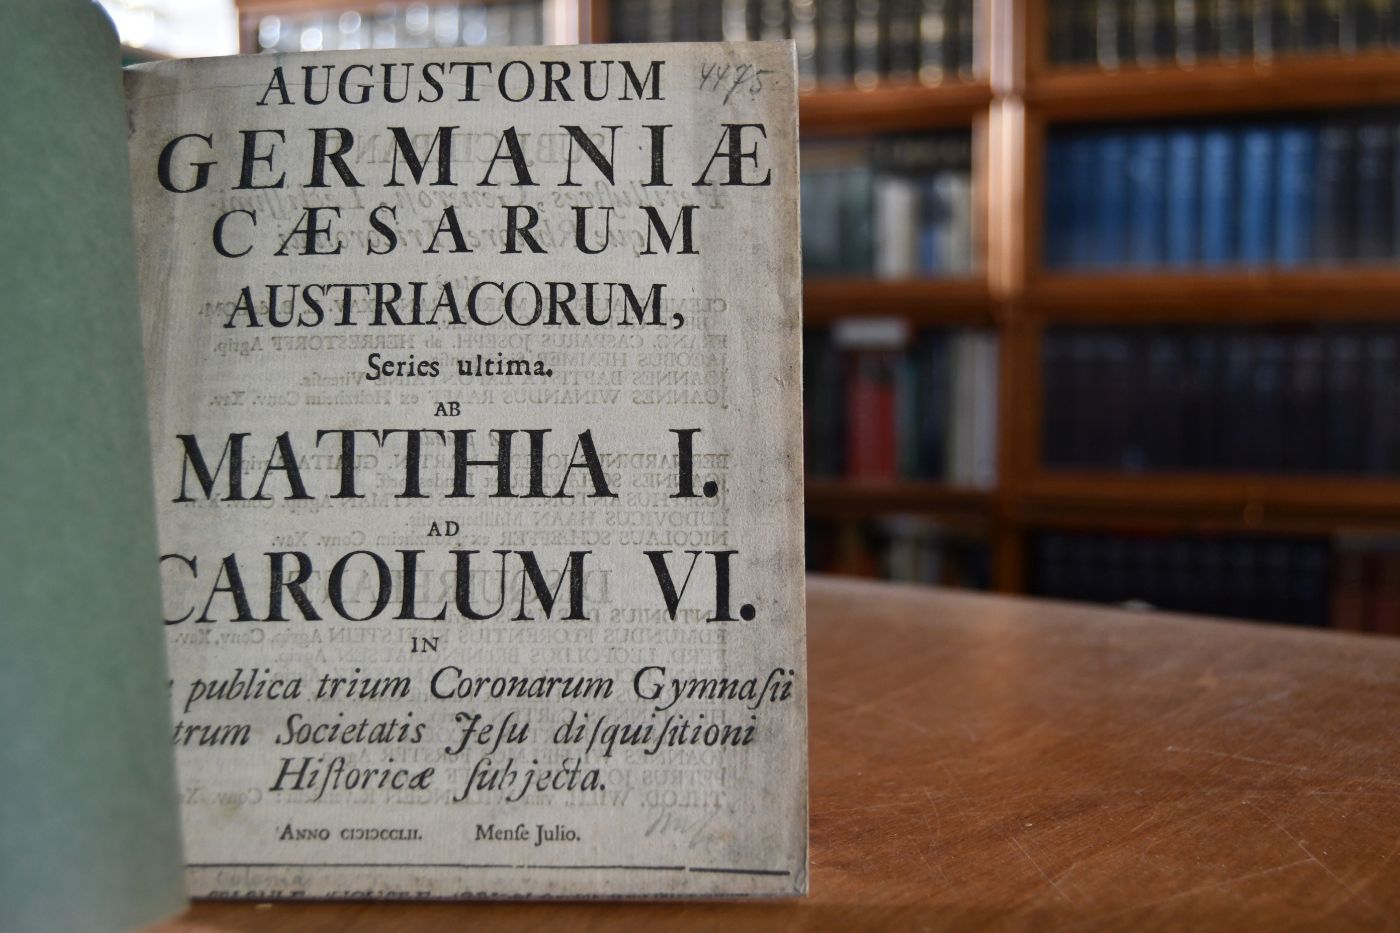 4475.
AUGUSTORUM
GERMANIÆ
CÆSARUM
AUSTRIACORUM,
Series ultima.
AB
MATTHIA I.
AD
CAROLUM VI.
IN
publica trium Coronarum Gymnaſii
trum Societatis Jeſu diſquiſitioni
Hiſtoricæ ſubjecta.
ANNO CIƆIƆCCLII. Menſe Julio.